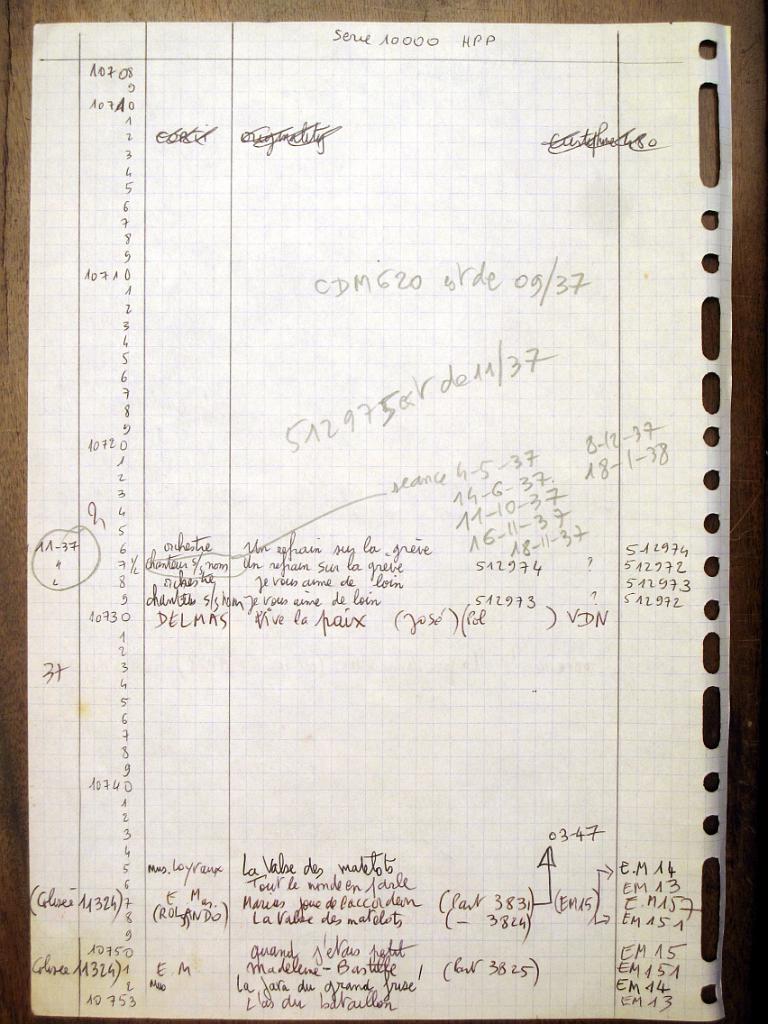 Serie 10000 HPP
10708
9
10710
1
2
3
4
5
6
7
8
9
10710
1
2
CDM 620 est de 09/37
3
4
5
6
7
512975 est de 11/37
8
9
10720
8-12-37
1
18-1-38
2
seance 4-5-37
3
14-6-37
4
11-10-37
5
16-11-37
18-11-37
11-37 6 orchestre Un refrain sur la grève 512974
" 7 1/2 chanteur s/s nom Un refrain sur la grève 512974 ? 512972
8 orchestre Je vous aime de loin 512973
9 chanteur s/s nom Je vous aime de loin 512973 ? 512972
10730 DELMAS Vive la paix (José) (Pol ) VDN
1
2
37 3
4
5
6
7
8
9
10740
1
2
3
03-47
4
5 mus. Loyraux La Valse des matelots E.M 14
6 Tout le monde en parle EM 13
(Colisée 11324) 7 E. Mus. Marius joue de l'accordéon (Part 3831) (EM15) E.M157
8 (ROLANDO) La Valse des matelots (— 3824) EM 151
9
10750 quand j'étais petit EM 15
(Colisée 11324) 1 E.M Madeleine-Bastille (Part 3825) EM151
2 Mus La java du grand frisé EM 14
10753 L'as du bataillon EM 13